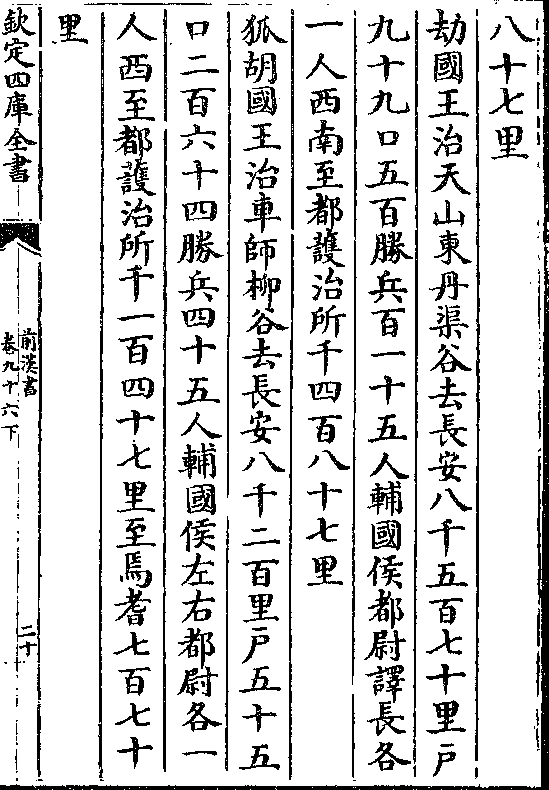 八十七里
劫國王治天山東丹渠谷去長安八千五百七十里戸
九十九口五百勝兵百一十五人輔國侯都尉譯長各
一人西南至都護治所千四百八十七里
狐胡國王治車師柳谷去長安八千二百里戸五十五
口二百六十四勝兵四十五人輔國侯左右都尉各一
人西至都護治所千一百四十七里至焉耆七百七十
里
欽定四庫全書
前漢書
卷九十六下
二十